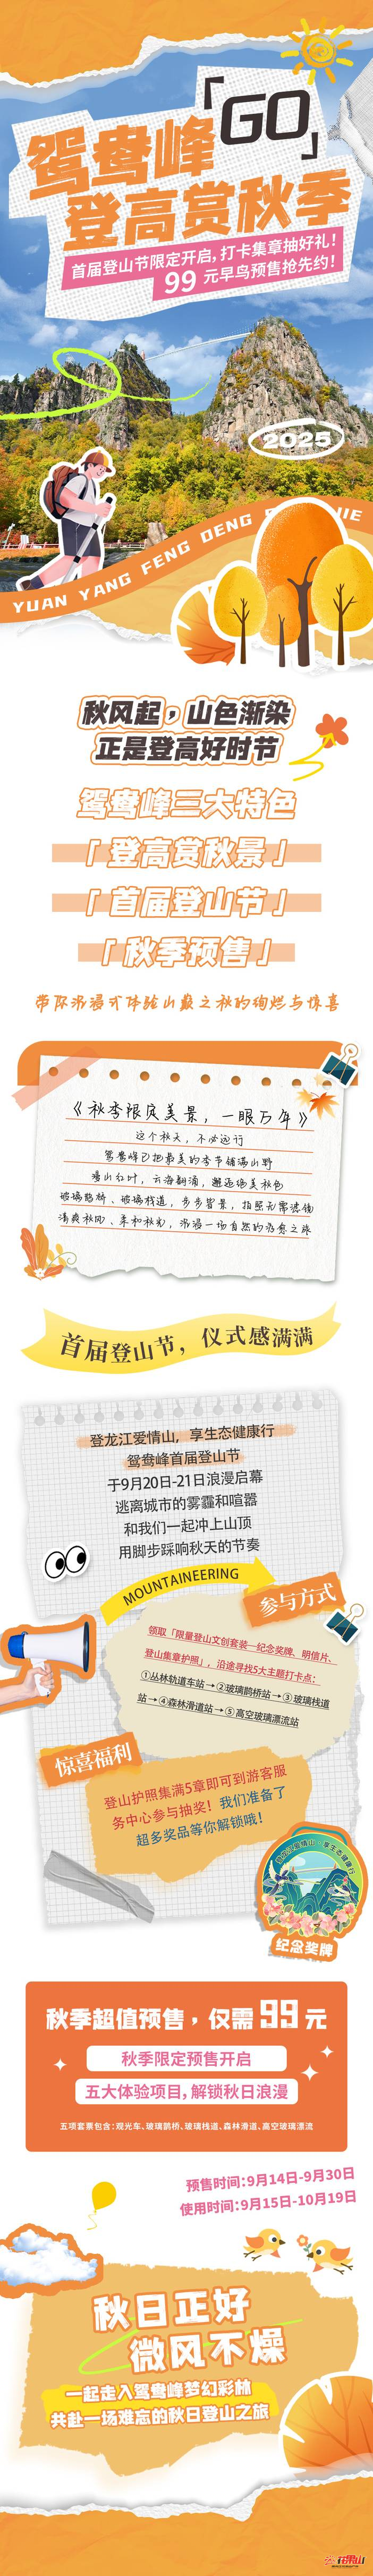 GO
鸳鸯峰
登高赏秋季
首届登山节限定开启,打卡集章抽好礼!
99元早鸟预售抢先约!
2025
YUAN YANG FENG DENG
秋风起,山色渐染
正是登高好时节
鸳鸯峰三大特色
「登高赏秋景」
「首届登山节」
「秋季预售」
带你沉浸式体验山巅之秋的绚烂与惊喜
《秋季限定美景,一眼万年》
这个秋天,不必远行
鸳鸯峰已把最美的季节铺满山野
漫山红叶,云海翻涌,邂逅绝美秋色
玻璃鹊桥、玻璃栈道,步步皆景,拍照无需滤镜
清爽秋风、柔和秋光,沉浸一场自然的治愈之旅
首届登山节,仪式感满满
登龙江爱情山,享生态健康行
鸳鸯峰首届登山节
于9月20日-21日浪漫启幕
逃离城市的雾霾和喧嚣
和我们一起冲上山顶
用脚步踩响秋天的节奏
MOUNTAINEERING
参与方式
领取「限量登山文创套装—纪念奖牌、明信片、
登山集章护照」,沿途寻找5大主题打卡点:
①丛林轨道车站→②玻璃鹊桥站→③玻璃栈道
站→④森林滑道站→⑤高空玻璃漂流站
惊喜福利
登山护照集满5章即可到游客服
务中心参与抽奖!我们准备了
超多奖品等你解锁哦!
登龙江爱情山·享生态健康行
纪念奖牌
秋季超值预售,仅需99元
秋季限定预售开启
五大体验项目,解锁秋日浪漫
五项套票包含:观光车、玻璃鹊桥、玻璃栈道、森林滑道、高空玻璃漂流
预售时间:9月14日-9月30日
使用时间:9月15日-10月19日
秋日正好
微风不燥
一起走入鸳鸯峰梦幻彩林
共赴一场难忘的秋日登山之旅